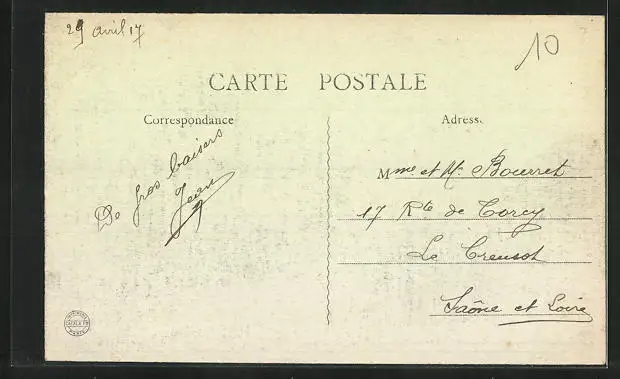 29 avril 17
10
CARTE POSTALE
Correspondance
Adresse
De gros baisers
Jean
Mme et Mr Bourret
17 Rte de Torcy
Le Creusot
Saône et Loire